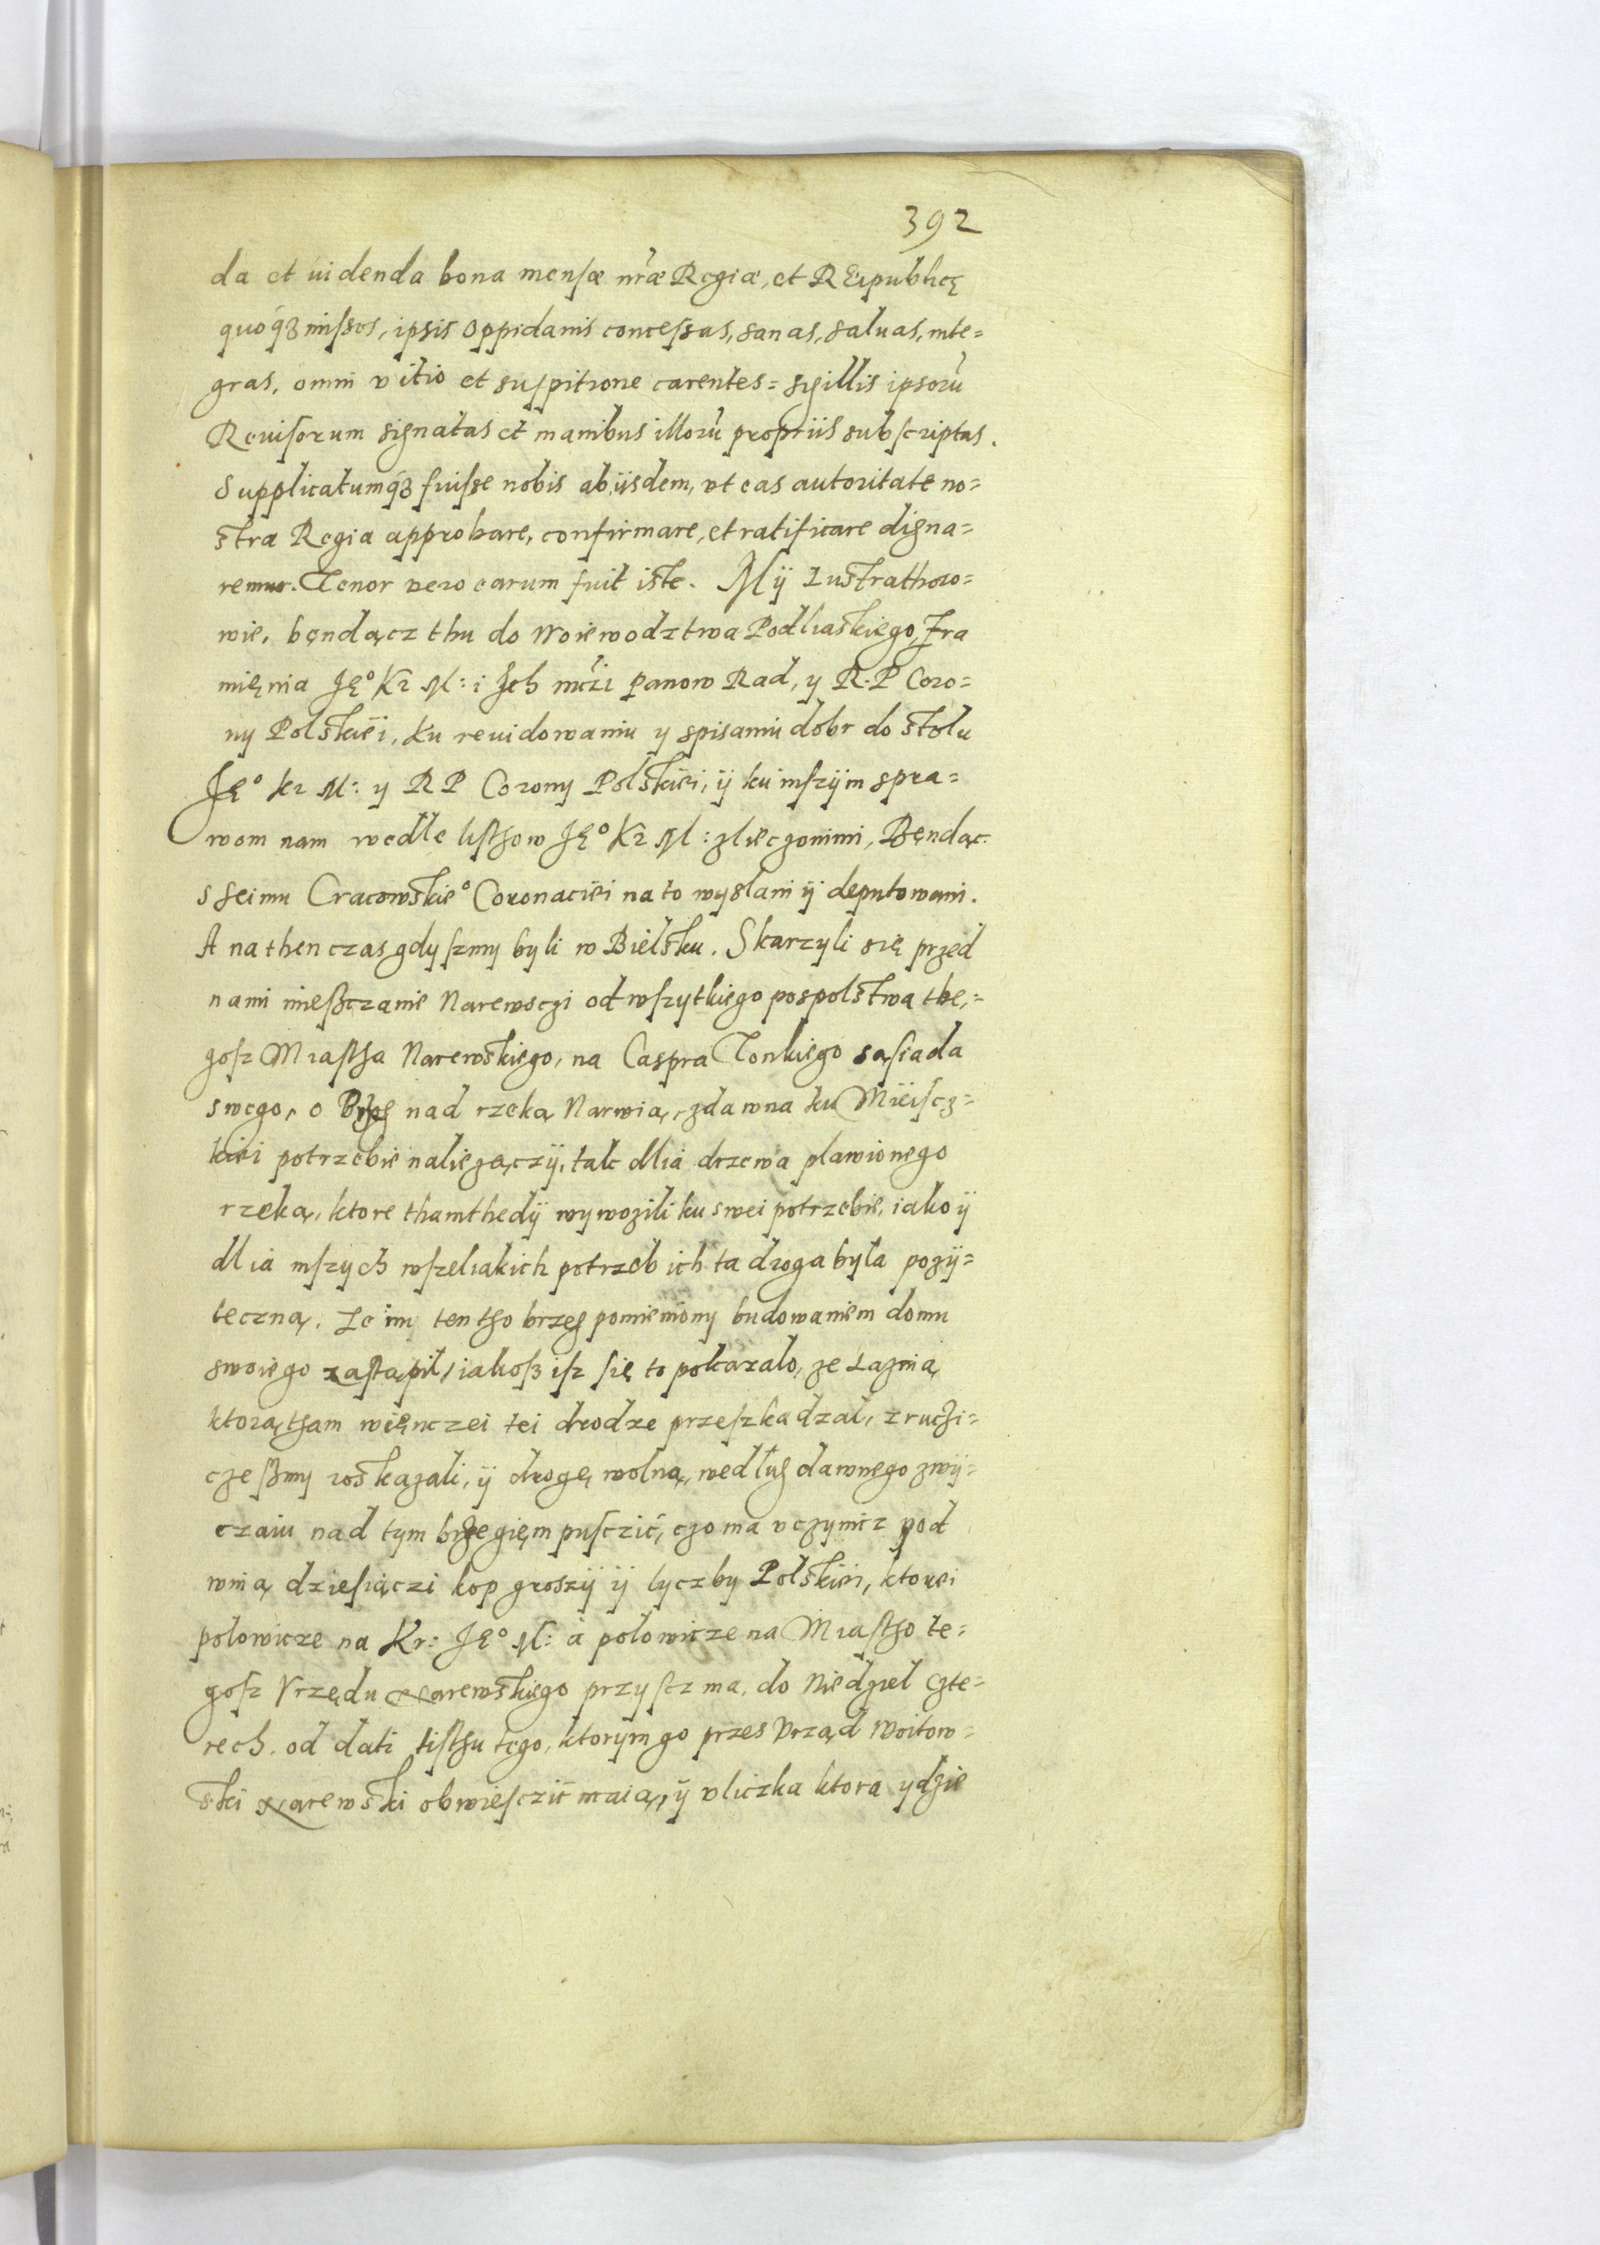 392
da et uidenda bona mensæ nr̃æ Regiæ, et REipublicę
quoq́ꝫ missos, ipsis oppidanis concessas, sanas, saluas, inte=
gras, omni vitio et suspitione carentes = sigillis ipsorũ
Reuisorum signatas et manibus illorũ propriis subscriptas.
Supplicatumq́ꝫ fuisse nobis ab iisdem, vt eas autoritate no=
stra Regia approbare, confirmare, et ratificare digna=
remur. Tenor vero earum fuit iste. Mÿ Lustrathoro=
wie, bęndącz thu do Woiewodztwa Podliaskiego, Zra
mięnia Ję° Kr̃ M: i Jch mc̃zi panow Rad, y R. P Coro=
ny Polskiei, ku reuidowaniu y spisaniu dobr do stolu
Ję° kr M: y R P Corony Polskiei, ÿ ku inszÿm spra=
wom nam wedle listhow Ję° Kr̃ M: zlieczonimi, Bęndąc:
s seimu Cracowskie° Coronaciei na to wyslani ÿ deputowani.
A na then czas gdy szmy byli w Bielsku. Skarzyli się przed
nami mieszczanie Narewsczi od wszytkiego pospolstwa the,=
gosz Miastha Narewskiego, na Caspra Tonkiego sąsiada
swego, o Brzeg nad rzeką Narwią, zdawna ku Mieiscz=
kiei potrzebie naliezączÿ, tak dlia drzewa plawionego
rzeką, ktore thamthedÿ wywozili ku swei potrzebie, iako ÿ
dlia inszych wszeliakich potrzeb ich ta droga byla pozÿ=
teczną. Ze im ten tho brzeg pomieniony budowaniem domu
swoiego zastąpil, iakosz isz się to pokazalo, ze Łaznią
ktorą tham więnczei tei drodze przeszkadzal, zruczi=
cze szmy roskazali, ÿ drogę wolną, według dawnego zwÿ=
czaiu nad tym brzegięm pusczić, czo ma vczynicz pod
winą dziesiączi kop groszÿ ÿ lyczby Polskiei, ktorei
polowicze na Kr: Ję° M: a polowicze na Miastho te=
gosz Vrzędu Narewskiego przyscz ma, do Niedziel czte=
rech. od dati listhu tego, ktorym go przes Vrząd Woitow=
ski Narewski obwiesczić maią, ÿ vliczka ktora ydzie